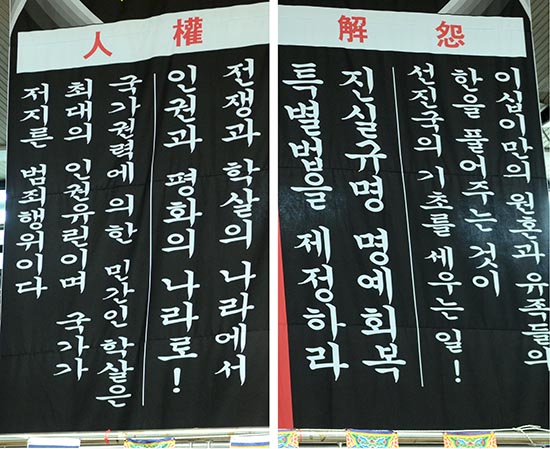 人權
전쟁과 학살의 나라에서
인권과 평화의 나라로!
국가권력에 의한 민간인 학살은
최대의 인권유린이며 국가가
저지른 범죄행위이다
解怨
이십이만의 원혼과 유족들의
한을 풀어주는 것이
선진국의 기초를 세우는 일!
진실규명 명예회복
특별법을 제정하라